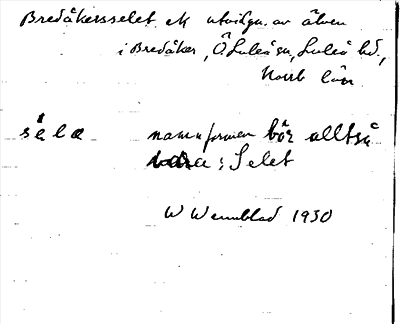 Bredåkersselet ek utvidgn. av älven
i Bredåker, Ö Luleå sn, Luleå hd,
Norrb län
séla namnformen bör alltså
vara: Selet
W Wennblad 1930